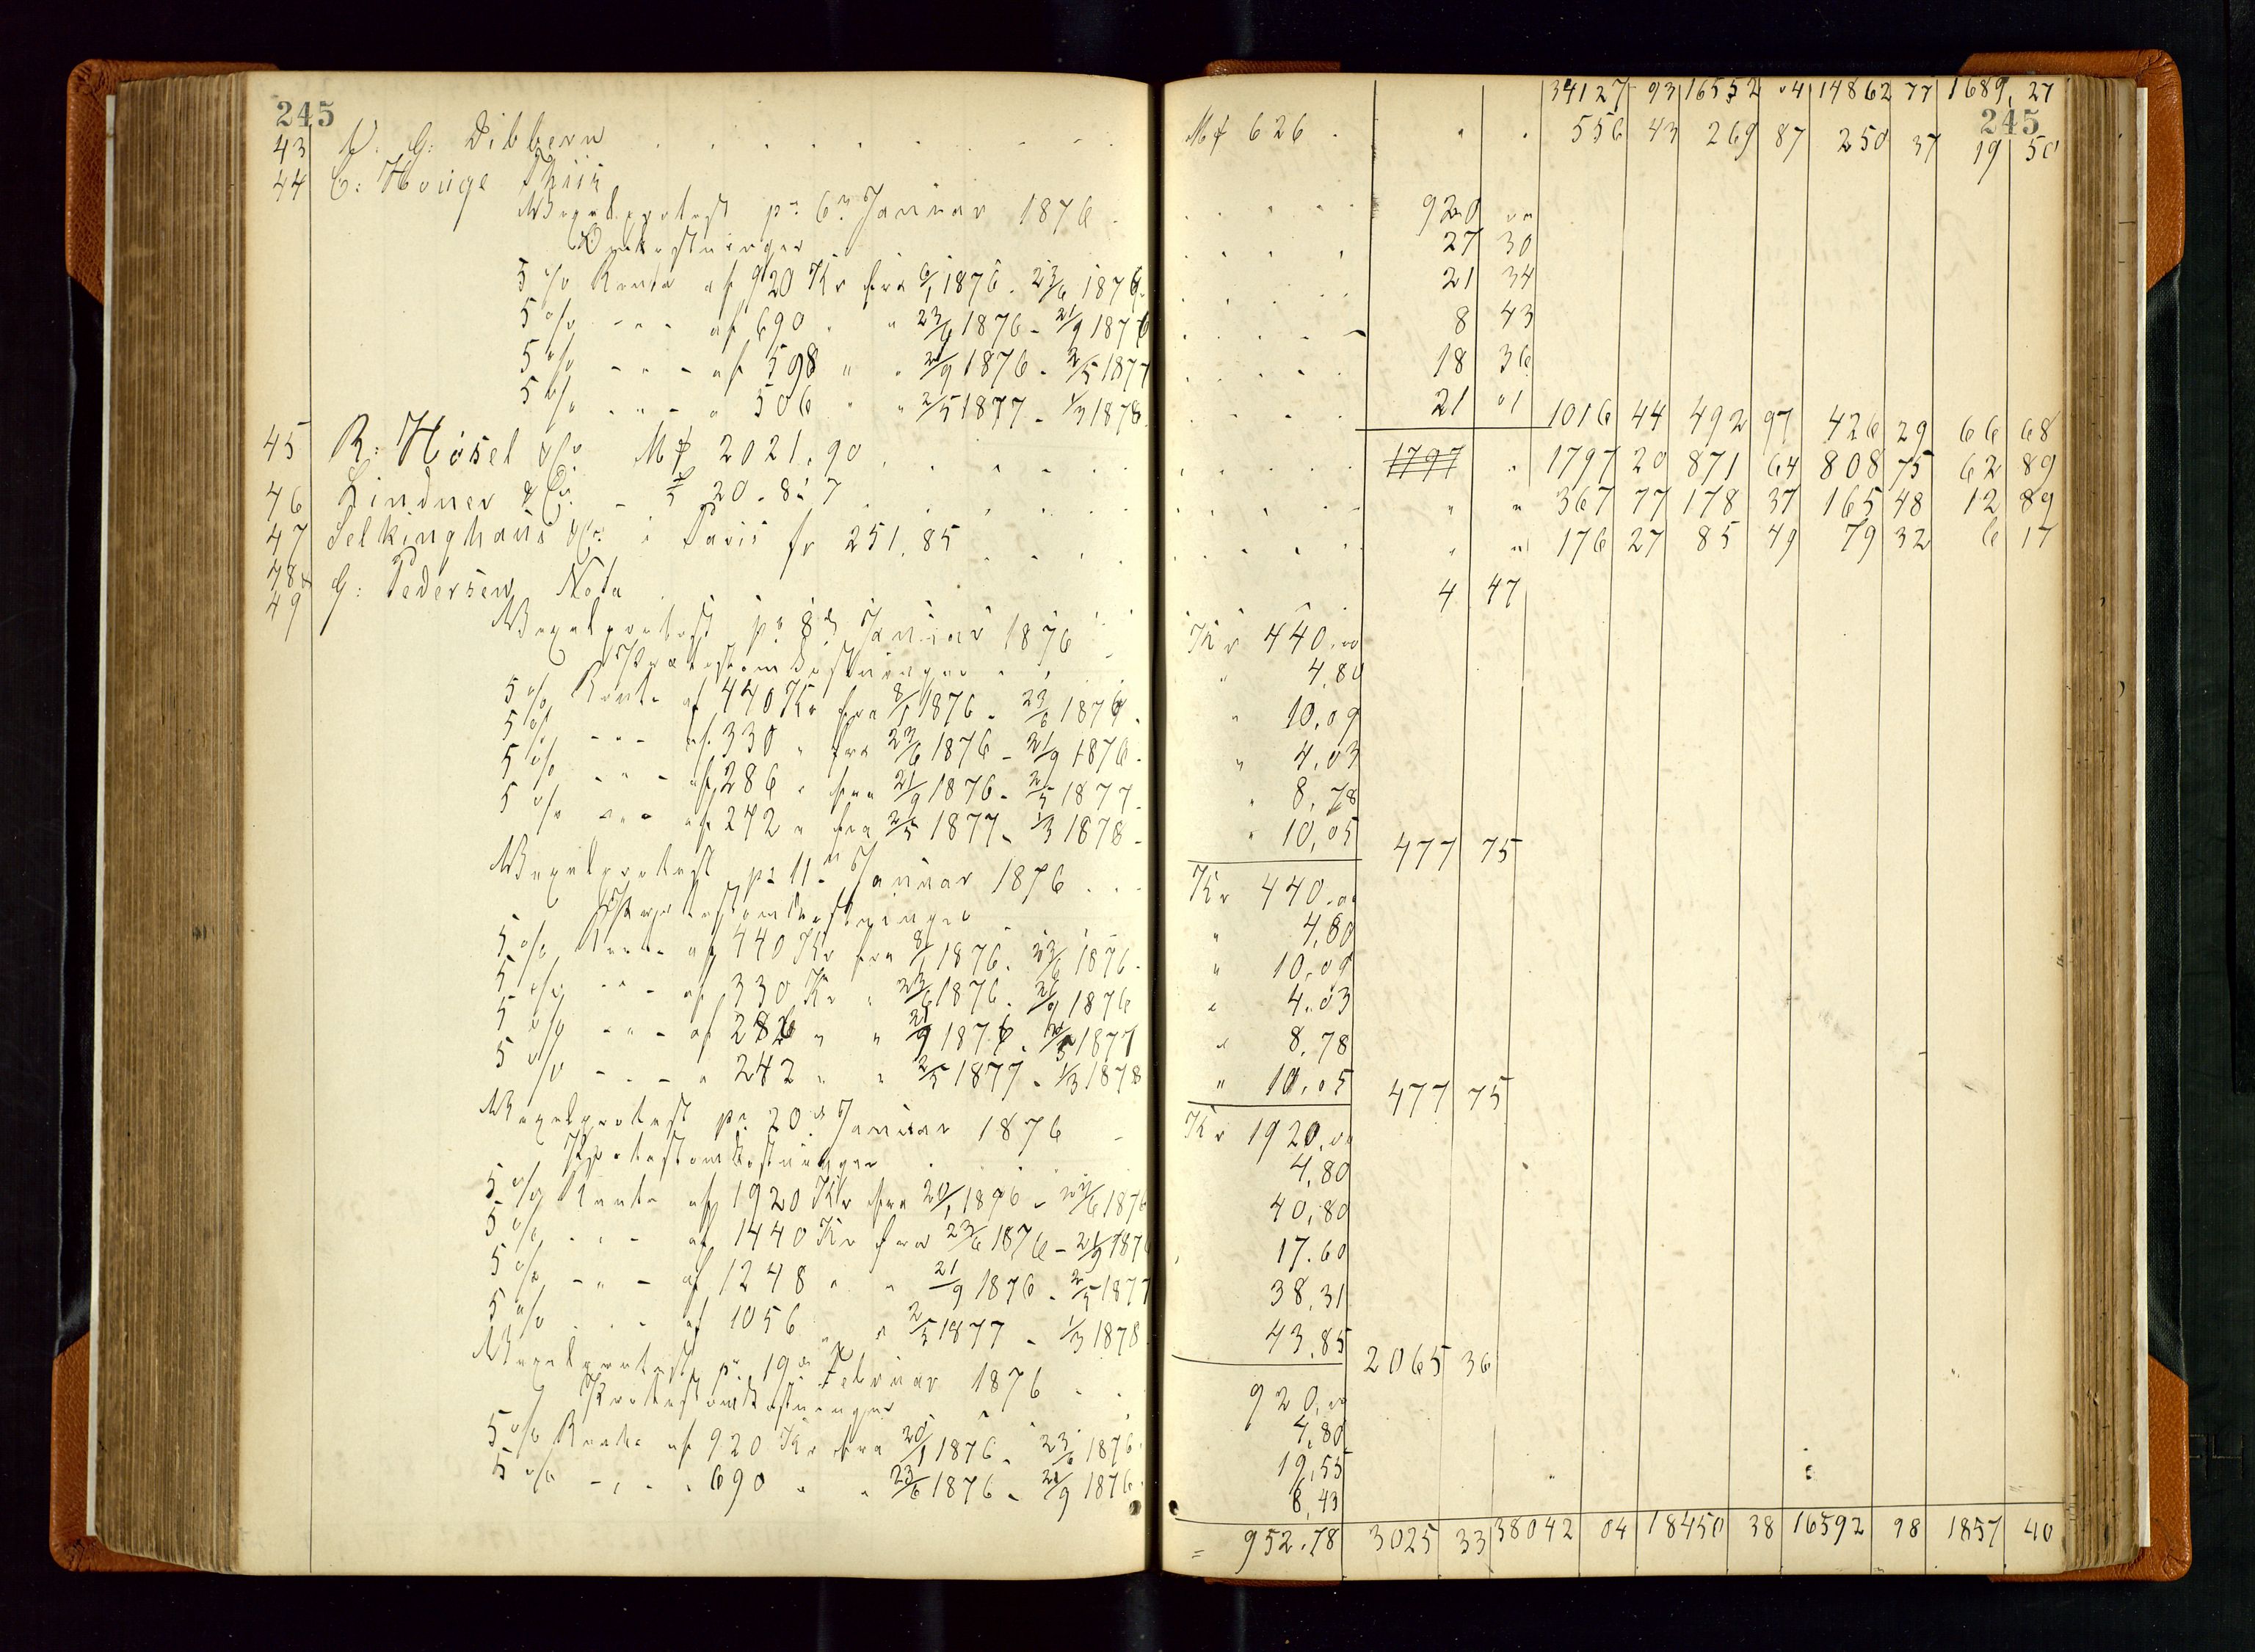 245
34127 93 16552 04 14862 77 1689, 27
245
43 G: Dibbern Mȼ 626 . " . 556 43 269 87 250 37 19 50
44 C: Houge Thiis
Vexelprotest pr 6n Januar 1876 920 00
Omkostninger 27 30
5 % Rente af 920 Kr fra 6/1 1876 - 23/6 1876 21 34
5 % - " - af 690 " " 23/6 1876 - 21/9 1876 8 43
5 % - " - af 598 " " 21/9 1876 - 2/5 1877 18 36
5 % - " - " 506 " " 2/5 1877 - 1/3 1878 21 01 1016 44 492 97 426 29 66 68
45 R: Hösel & Co Mȼ 2021.90 1797 " 1797 20 871 64 808 75 62 89
46 Lindner & Co. - £ 20 - 8: 7 " " 367 77 178 37 165 48 12 89
47 Selkinghaus & Co: i Paris fr 251.85 " " 176 27 85 49 79 32 6 17
48 G: Pedersen Nota 4 47
49
Vexelprotest pr 8de Januar 1876 Kr 440.00
Protestomkostninger " 4,80
5 % Rente af 440 Kr fra 8/1 1876 - 23/6 1876 " 10,09
5 % - " - af 330 " fra 23/6 1876 - 21/9 1876 " 4,03
5 % - " - af 286 " fra 21/9 1876 - 2/5 1877 " 8,78
5 % - " - af 242 " fra 2/5 1877 - 1/3 1878 " 10,05 477 75
Vexelprotest pr 11n Januar 1876 Kr 440.00
Protestomkostninger " 4,80
5 % Rente af 440 Kr fra 8/1 1876 - 23/6 1876 " 10,09
5 % - " - af 330 Kr " 23/6 1876 - 21/9 1876 " 4.03
5 % - " - af 286 " " 21/9 1876 - 2/5 1877 " 8,78
5 % - " - " 242 " " 2/5 1877 - 1/3 1878 " 10,05 477 75
Vexelprotest pr 20de Januar 1876 Kr 1920.00
Protestomkostninger 4,80
5 % Rente af 1920 Kr fra 20/1 1876 - 23/6 1876 40,80
5 % - " - af 1440 Kr fra 23/6 1876 - 21/9 1876 17.60
5 % - " - af 1248 " " 21/9 1876 - 2/5 1877 38,31
5 % - " - af 1056 " " 2/5 1877 - 1/3 1878 43,85 2065 36
Vexelprotest pr 19de Februar 1876 920,00
Protestomkostninger 4,80
5 % Rente af 920 Kr fra 20/1 1876 - 23/6 1876 19,55
5 % - " - " 690 " " 23/6 1876 - 21/9 1876 8,43
= 952.78 3025 33 38042 04 18450 38 16592 98 1857 40